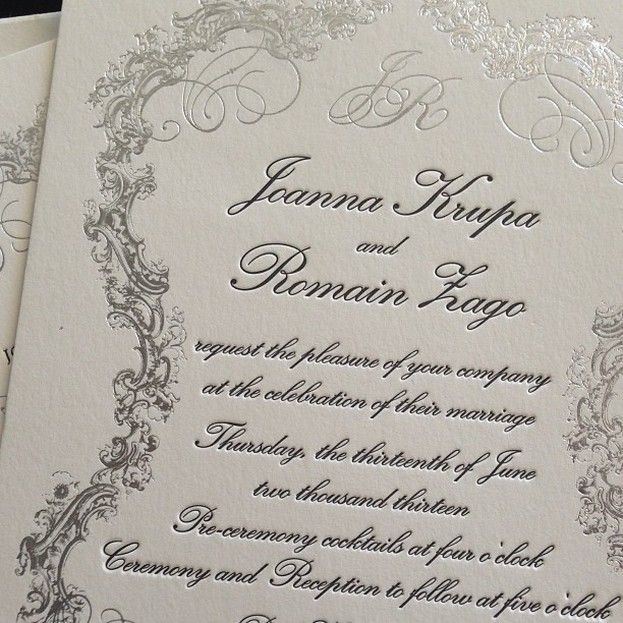 JR
Joanna Krupa
and
Romain Zago
request the pleasure of your company
at the celebration of their marriage
Thursday, the thirteenth of June
two thousand thirteen
Pre-ceremony cocktails at four o'clock
Ceremony and Reception to follow at five o'clock